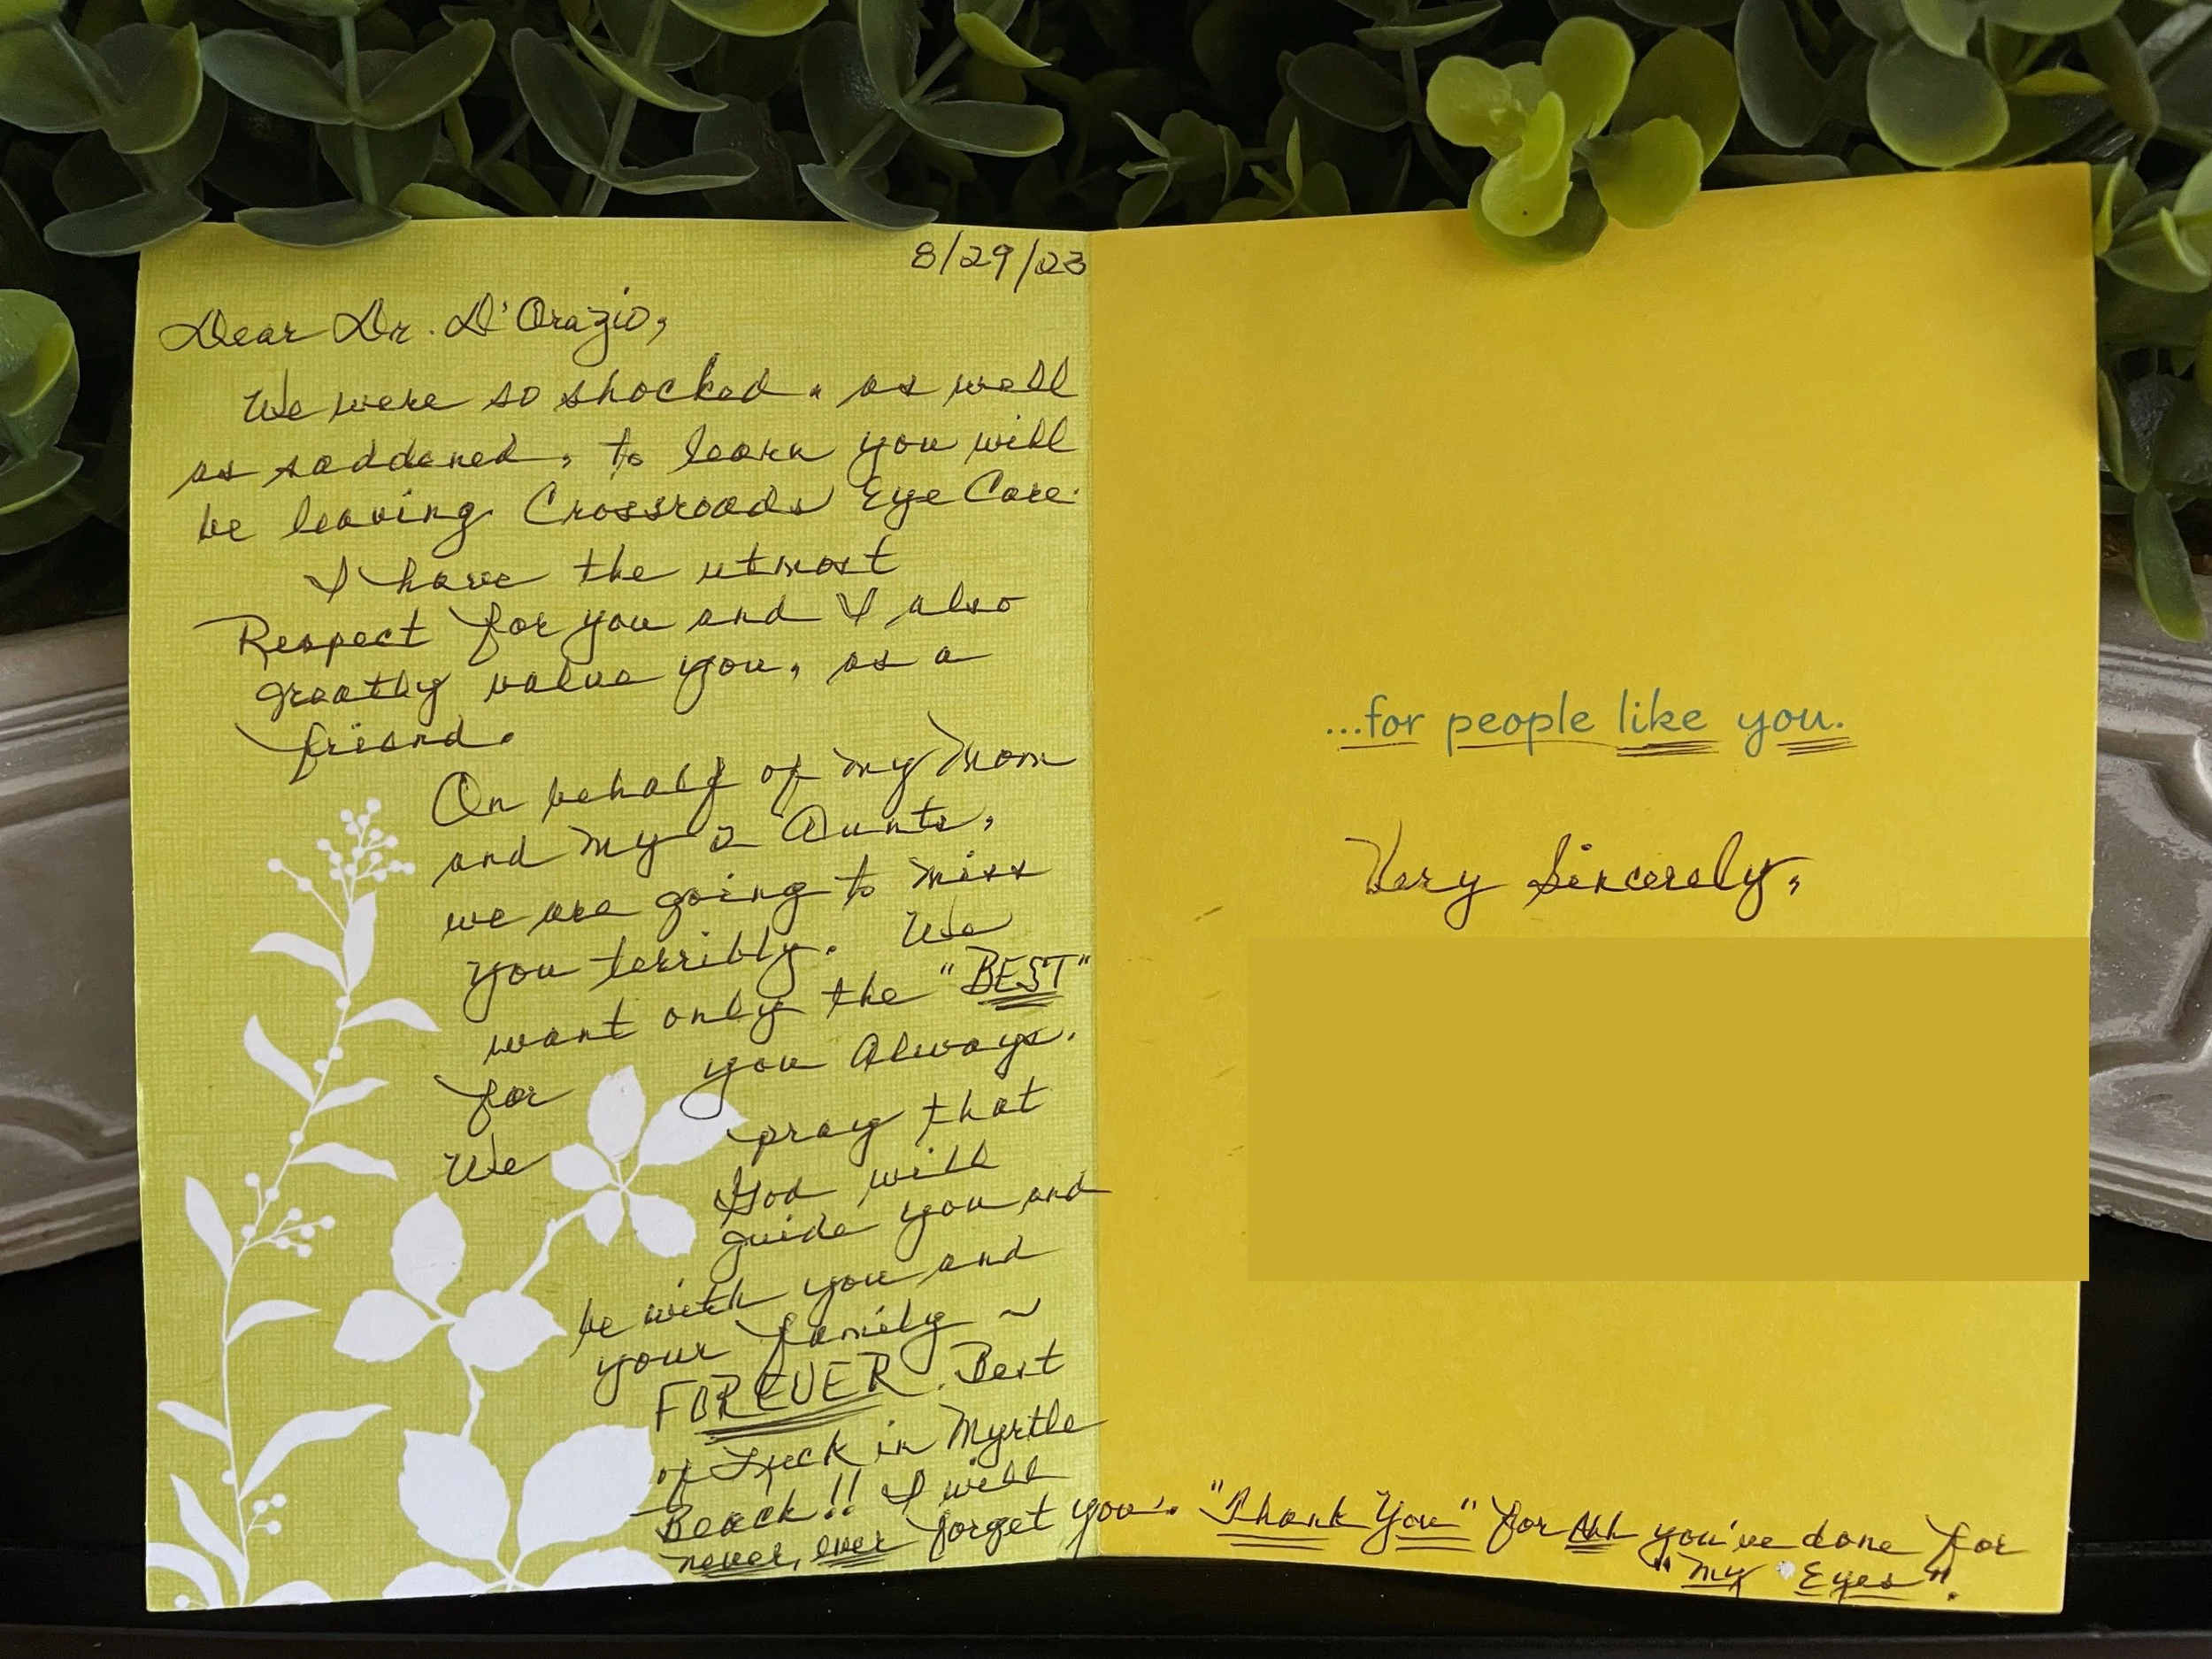 8/29/23
Dear Dr. D'Orazio,
We were so shocked, as well
as saddened, to learn you will
be leaving Crossroads Eye Care.
I have the utmost
Respect for you and I also
greatly value you, as a
friend.
On behalf of my Mom
and my 2 Aunts,
we are going to miss
you terribly. We
want only the "BEST"
for you Always.
We pray that
God will
guide you and
be with you and
your family ~
FOREVER. Best
of Luck in Myrtle
Beach!! I will
never, ever forget you. "Thank You" for All you've done for
"My Eyes".
...for people like you.
Very Sincerely,